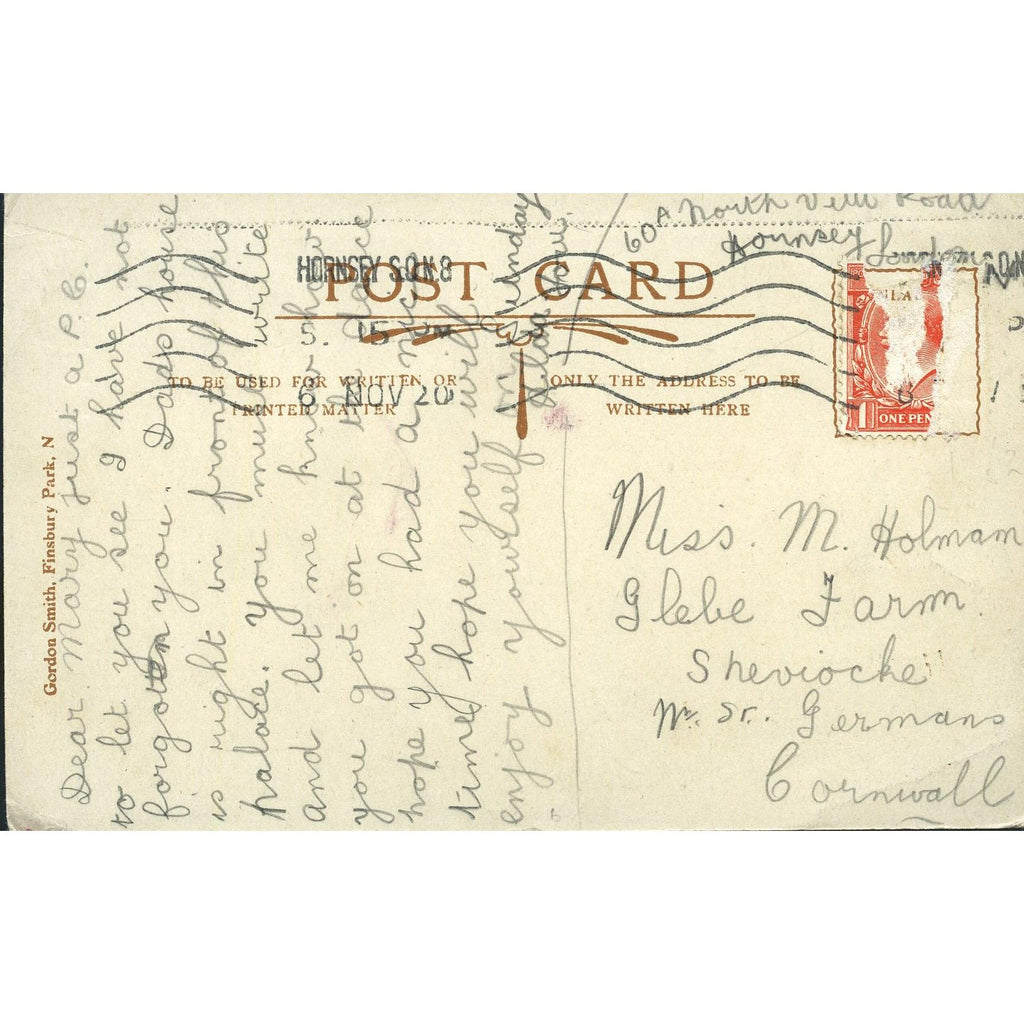 60A North View Road
Hounsey London
POST CARD
HORNSEY S.O. N.8
5. 15 PM
6 NOV 20
TO BE USED FOR WRITTEN OR
PRINTED MATTER
ONLY THE ADDRESS TO BE
WRITTEN HERE
ONE PEN
1
Gordon Smith, Finsbury Park, N
Dear Mary just a P.C.
to let you see I have not
forgotten you. Dads house
is right in front of this
palace. you must write
and let me know how
you got on at the dance
hope you had a nice
time hope you will
enjoy yourself on Sunday
Miss M. Holmam
Glebe Farm.
Sheviocke
Nr. St. Germans
Cornwall